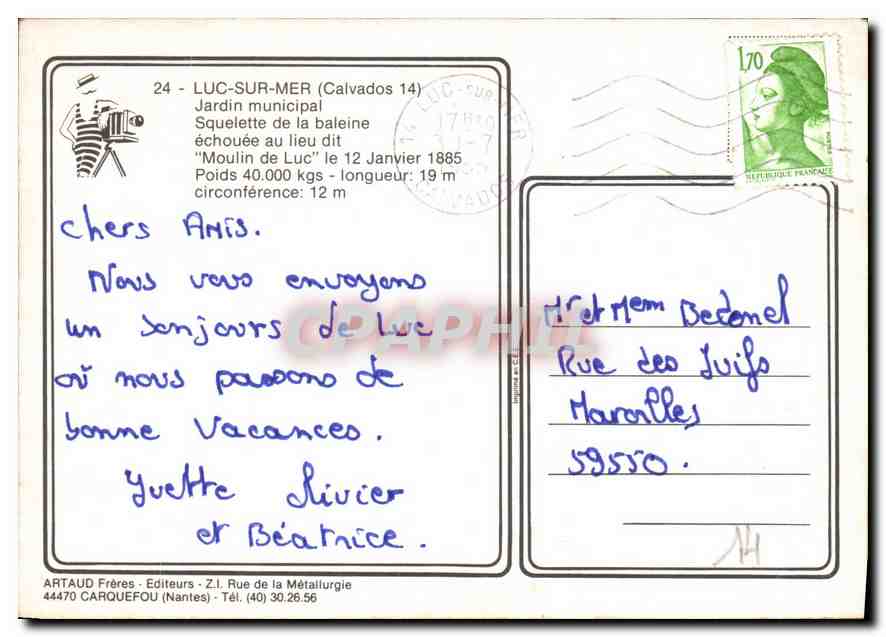 24 - LUC-SUR-MER (Calvados 14)
Jardin municipal
Squelette de la baleine
échouée au lieu dit
"Moulin de Luc" le 12 Janvier 1885
Poids 40.000 kgs - longueur: 19 m
circonférence: 12 m
14 LUC-SUR-MER
17H
-7
CALVADOS
1,70
REPUBLIQUE FRANÇAISE
chers Amis.
Nous vous envoyons
un bonjours de Luc
où nous passons de
bonne Vacances.
Yvette Rivier
et Béatrice.
CPAPHIL
Imprimé en C.E.
Mr et Mem Bedonel
Rue des Juifs
Maroilles
59550.
14
ARTAUD Frères - Editeurs - Z.I. Rue de la Métallurgie
44470 CARQUEFOU (Nantes) - Tél. (40) 30.26.56